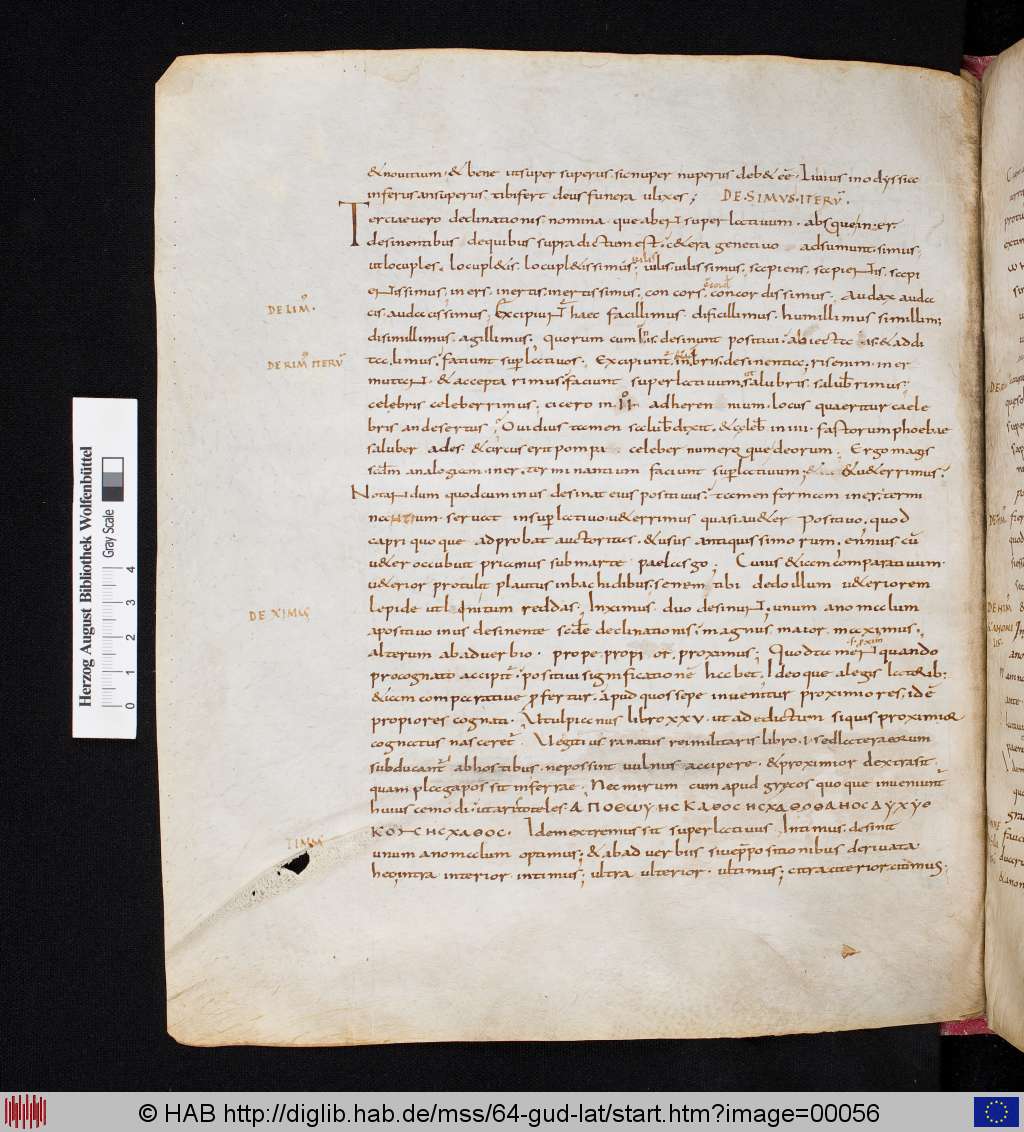 & nouitium · & bene ut super superus sic nuper nuperus deb& eē · Liuius in odyssia
inferus an superus tibi fert deus funera ulixes ; DE · SIMUS · ITERŪ ·
Terciae uero declinationis nomina · quae abent superlatiuum · absque in · er ·
desinentibus de quibus supra dictum est · c&era genetiuo adsumunt · simus ·
ut locuples · locupl&is · locupl&issimus · uilis · uilissimus · sapiens · sapientis · sapi
DE LIM̊ ·
entissimus · iners · inertis · inertissimus · concors · concordissimus · Audax auda
cis · audacissimus · Excipiunt haec facillimus · dificillimus · humillimus simillim;
disimillimus · agillimus · quorum cum lis · desinunt positiui · abiecta is · & addi
DE RIM̊ ITERŪ
ta · limus · faciunt suplatiuos · Excipiunt in bris · desinentia · ris enim · in er
mutant · & accepta rimus faciunt superlatiuum salubris · salubrimus ·
celebris celeberrimus · cicero in · II · adherennium · locus quaeritur caele
bris an desertus · Ouidius tamen saluber dixit · & celeb in IIII · fastorum phoebae
saluber ades · & circus erit pompa celeber numero que deorum · Ergo magis
scdm analogiam · in er · terminantium faciunt suplatiuum & u&errimus ·
Notandum quod cum in us desinat eius positiuus · tamen formam in er · termi
nantium · seruat in suplatiuo u&errimus quasi a u&er Positiuo · quod
capri quoque adprobat auctoritas · & usus antiquissimorum · ennius cū
u&er occubuit priamus sub marte paelasgo ; Cuius & iam comparatiuum
u&erior protulit plautus in bachidibus · senem tibi dedo illum u&eriorem
DE XIMUS
lepide ut l qnitum reddas · In ximus · duo desinunt · unum anomalum
a positiuo in us desinente scdae declinationis · magnus · maior · maximus ·
alterum ab aduerbio · prope · propior · proximus ; Quod tamen quando
pro cognato accipit · positiui significationē habet · Ideoque a legis latorib;
& iam comparatiuae profertur · apud quos sepe inuenitur proximiores · idē
propiores cognati · Ut ulpianus libro XXV · ut ad edictum siquis proximior
cognatus nasceret · Uegitius ranatus rei militaris libro · I · sed laterae eorum
subducant ab hostibus · ne possint uulnus accipere · & proximior dextra sit ·
quam plaga possit inferrae · Nec mirum cum apud grecos quoque inueniunt
huiuscemodi · ut aristoteles · ΑΠΟΘΩΥΗC ΚΑΘΟC ΗCΧΑΘΟΘΑΝΟC ΔΥΧΥΘ
TIMM
ΚΟΥC ΗCΧΑΘΟC · Idem extremus sit superlatiuus · In timus · desinit
unum anomalum optimus ; & ab aduerbiis siue ppositionibus deriuata
hec · intra interior · intimus ; ultra ulterior · ultimus ; citra citerior · citimus ·
Herzog August Bibliothek Wolfenbüttel
Gray Scale
0 1 2 3 4
© HAB http://diglib.hab.de/mss/64-gud-lat/start.htm?image=00056